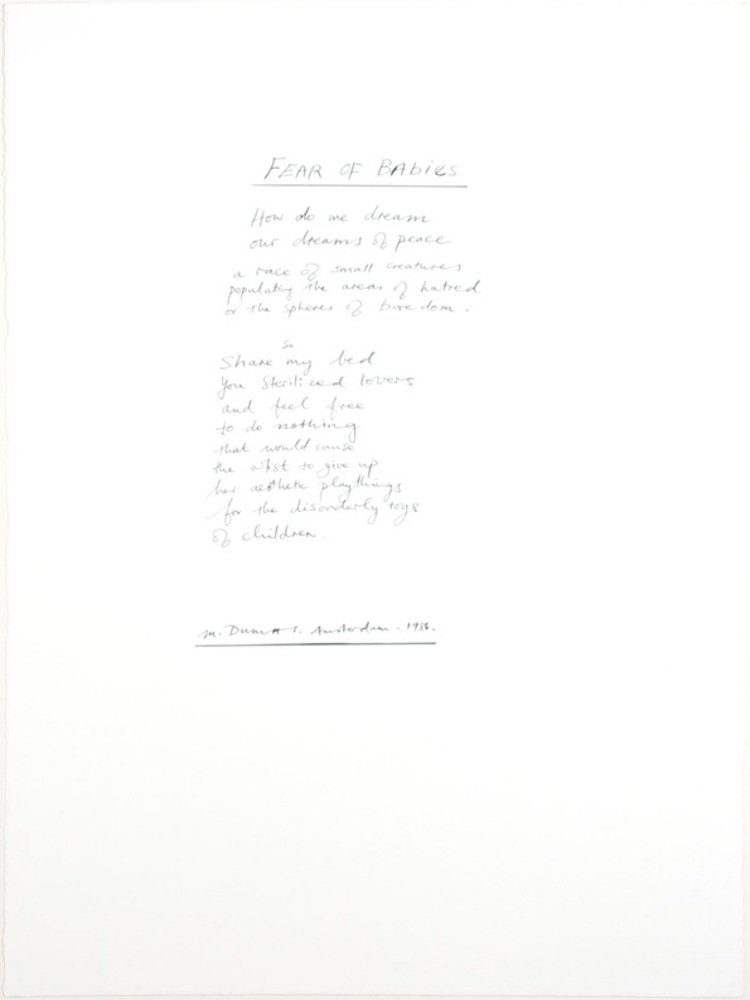 FEAR OF BAbiES
How do we dream
our dreams of peace
a race of small creatures
populating the areas of hatred
or the spheres of boredom.
so
Share my bed
You Sterilized lovers
and feel free
to do nothing
that would cause
the artist to give up
her aesthetic playthings
for the disorderly toys
of children.
M. Dumas. Amsterdam. 1986.